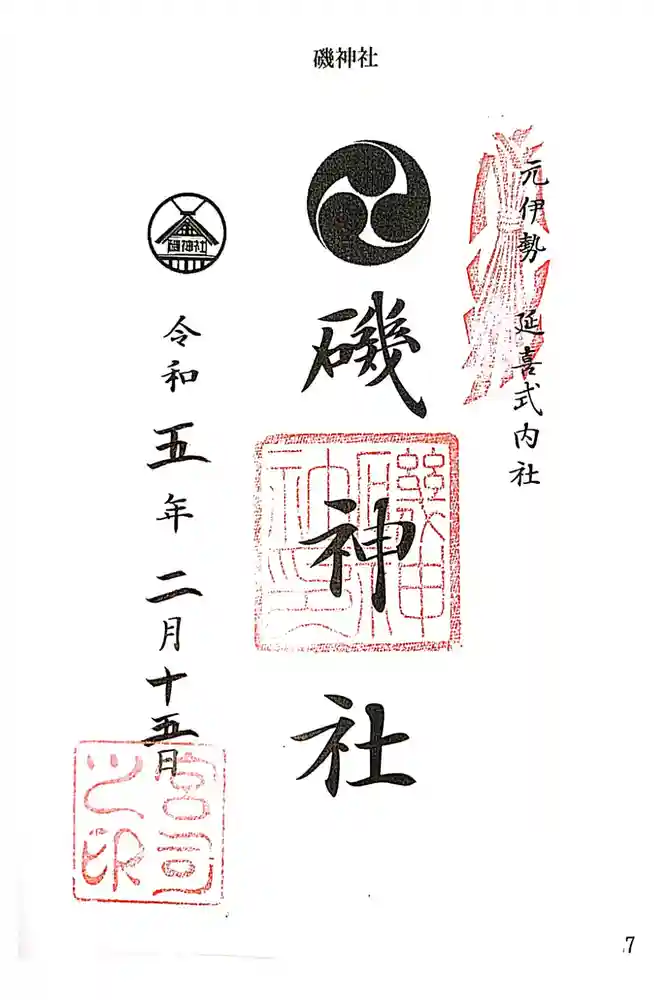 磯神社
元伊勢 延喜式内社
磯神社
磯神社
令和五年二月十五日
宮司之印
7